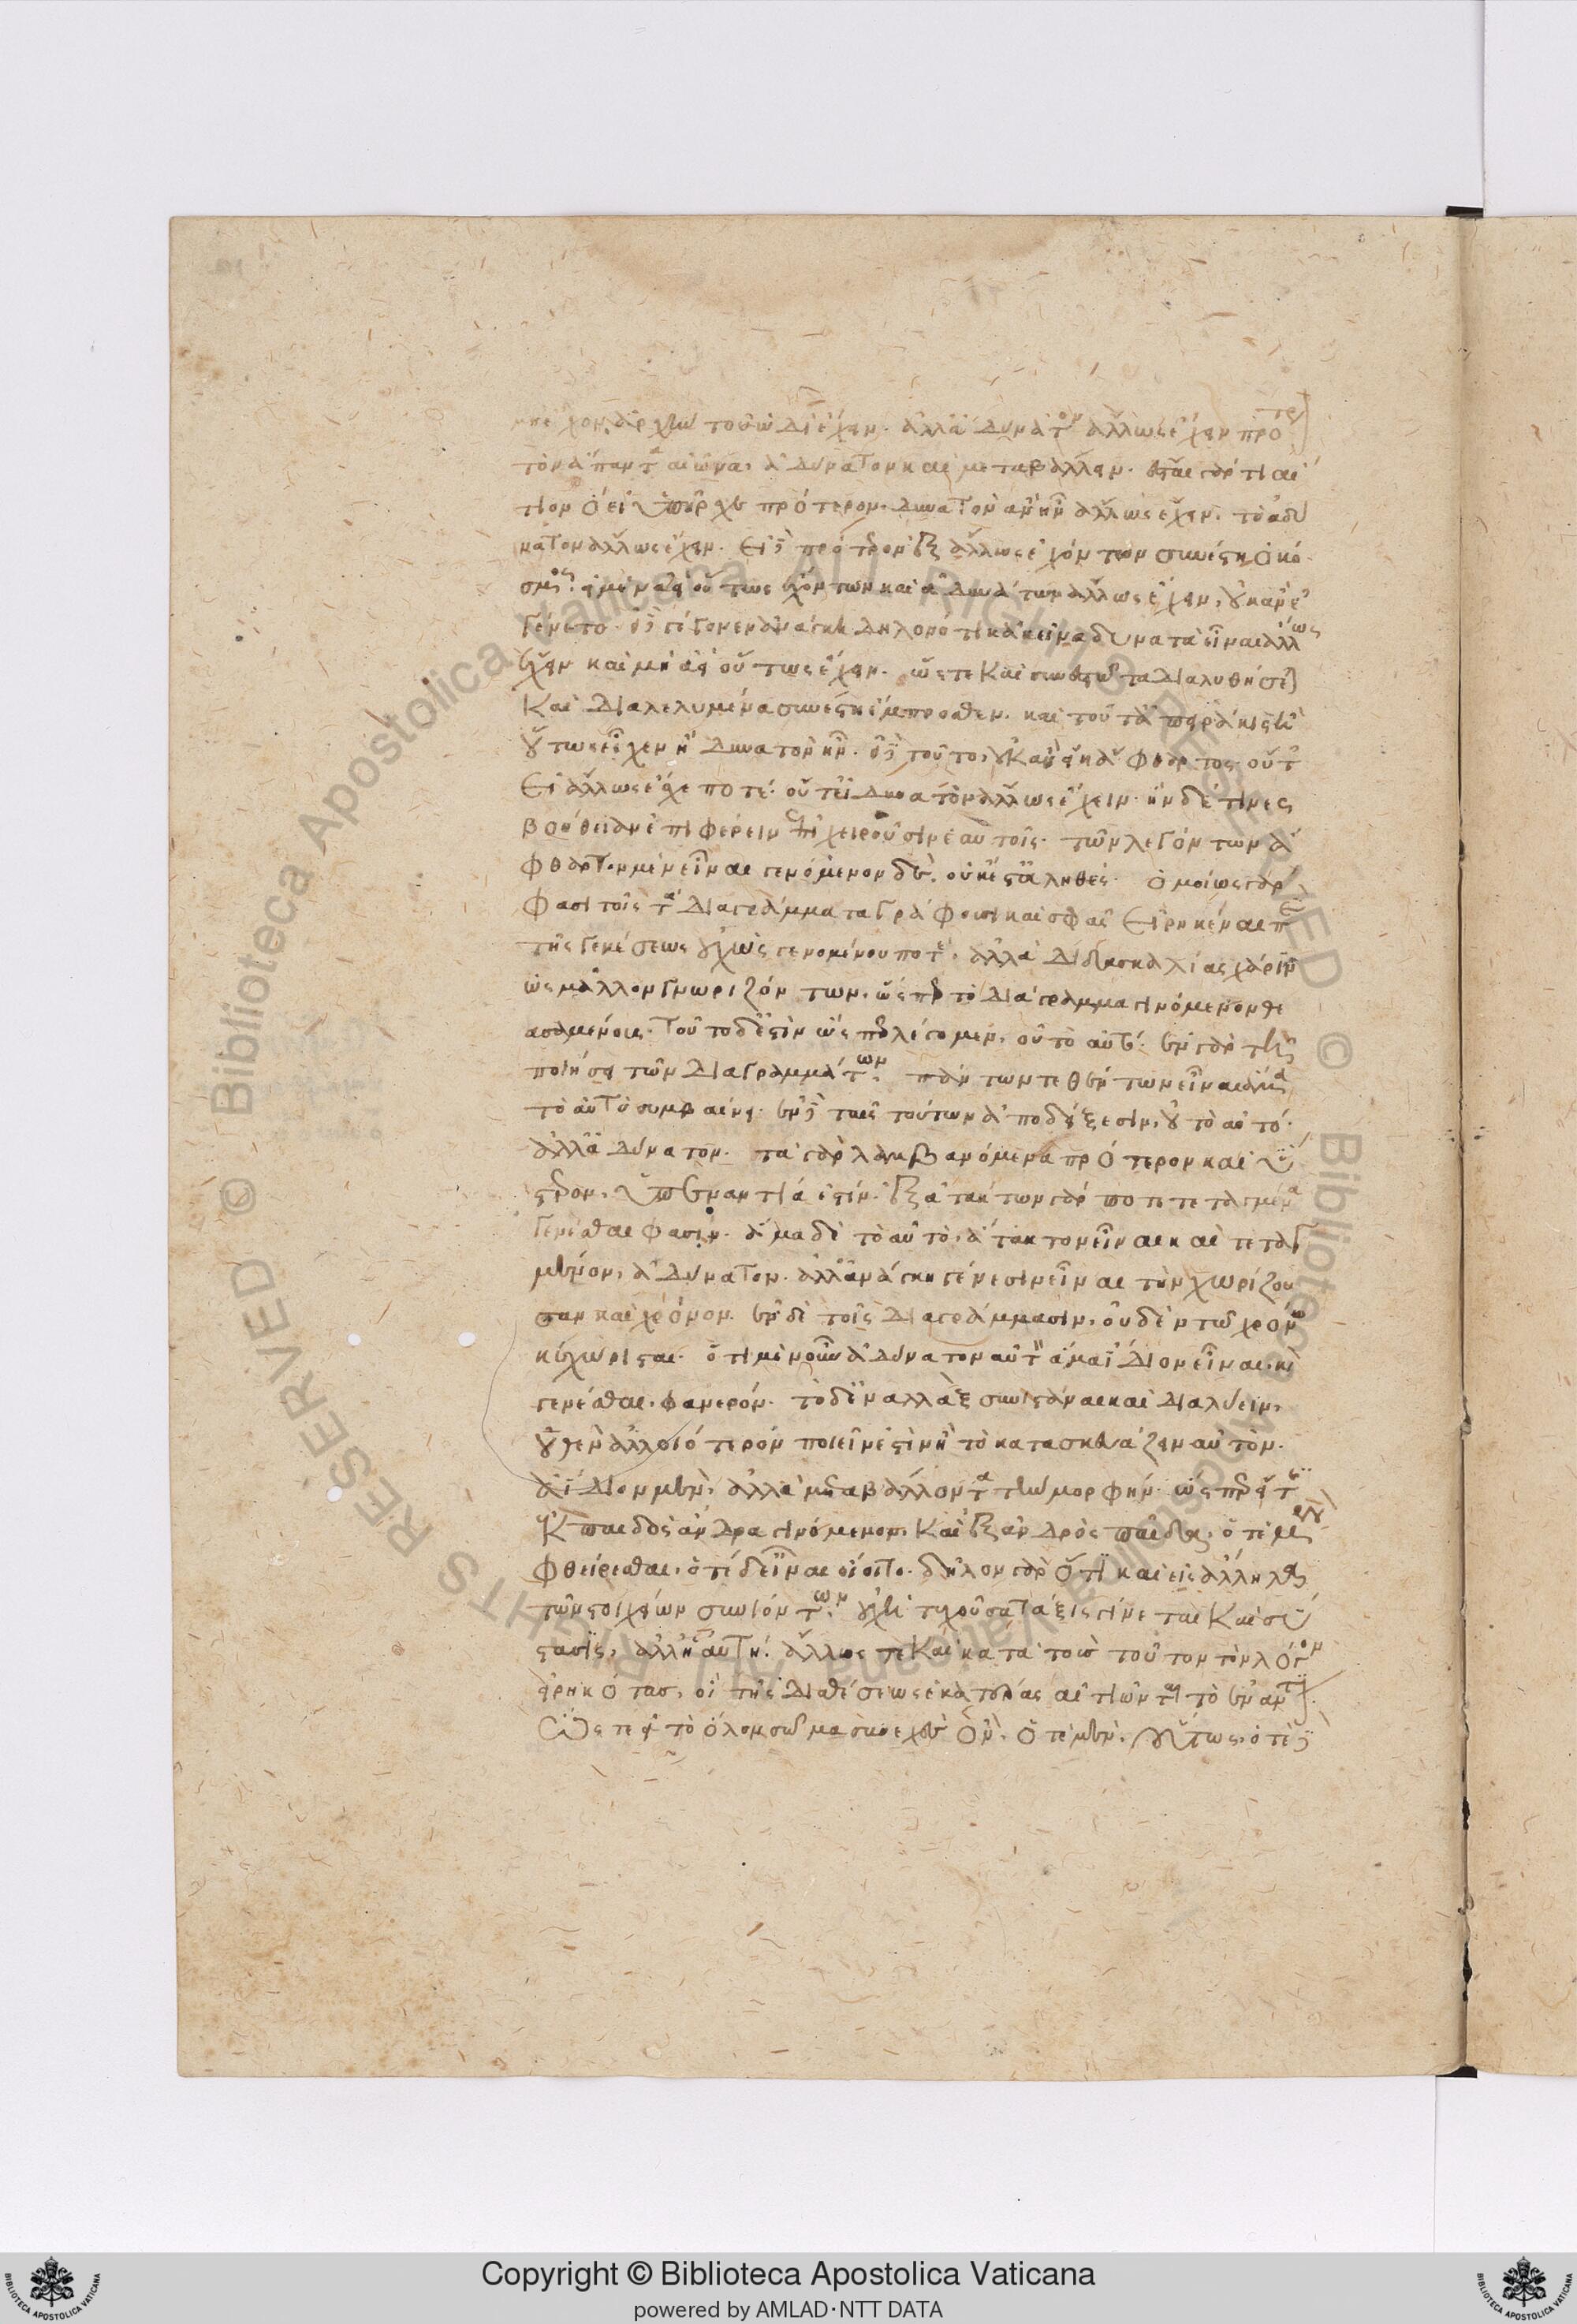 μὴ ἔχον ἀρχὴν τοῦ ὡδὶ ἔχειν. ἀλλ' ἀδύνατον ἄλλως ἔχειν πρότε
τὸν ἅπαντα αἰῶνα, ἀδύνατον καὶ μεταβάλλειν. ἔσται γάρ τι αἴ
τιον ὃ εἰ ὑπῆρχε πρότερον. δυνατὸν ἂν ἦν ἄλλως ἔχειν, τὸ ἀδύ
νατον ἄλλως ἔχειν. Εἰ δὲ πρότερον ἐξ ἄλλως ἐχόντων συνέστη ὁ κό
σμος. εἰ μὲν ἀεὶ οὕτως ἐχόντων καὶ ἀδυνάτων ἄλλως ἔχειν, οὐκ ἂν ἐ
γένετο. εἰ δὲ γέγονεν ἀνάγκη δηλονότι κἀκεῖνα δυνατὰ εἶναι ἄλλως
ἔχειν καὶ μὴ ἀεὶ οὕτως ἔχειν. ὥστε καὶ συνεστῶτα διαλυθήσεται
καὶ διαλελυμένα συνέστη ἔμπροσθεν. καὶ τοῦτ' ἀπειράκις ἢ
οὕτως εἶχεν ἢ δυνατὸν ἦν. εἰ δὲ τοῦτο, οὐκ ἂν εἴη ἄφθαρτος. οὔτ
εἰ ἄλλως εἶχέ ποτέ. οὔτ' εἰ δυνατὸν ἄλλως ἔχειν. ἣν δέ τινες
βοήθειαν ἐπιφέρειν ἐπιχειροῦσιν ἑαυτοῖς. τῶν λεγόντων ἄ
φθαρτον μὲν εἶναι γενόμενον δέ. οὐκ ἔστ' ἀληθές. ὁμοίως γάρ
φασι τοῖς τὰ διαγράμματα γράφουσι καὶ σφᾶς εἰρηκέναι περὶ
τῆς γενέσεως οὐχ ὡς γενομένου ποτέ, ἀλλὰ διδασκαλίας χάριν
ὡς μᾶλλον γνωριζόντων, ὥσπερ τὸ διάγραμμα γινόμενον θε
ασαμένους. τοῦτο δ' ἔστιν ὥσπερ λέγομεν, οὐ τὸ αὐτό. ἐν γὰρ τῇ
ποιήσει τῶν διαγραμμάτων. πάντων τεθέντων εἶναι ἅμα
τὸ αὐτὸ συμβαίνει. ἐν δὲ ταῖς τούτων ἀποδείξεσιν, οὐ τὸ αὐτό.
ἀλλ' ἀδύνατον. τὰ γὰρ λαμβανόμενα πρότερον καὶ ὕ
στερον, ὑπεναντία ἐστίν. ἐξ ἀτάκτων γάρ ποτε τεταγμένα
γενέσθαι φασίν. ἅμα δὲ τὸ αὐτὸ, ἄτακτον εἶναι καὶ τεταγ
μένον, ἀδύνατον. ἀλλ' ἀνάγκη γένεσιν εἶναι τὴν χωρίζου
σαν καὶ χρόνον. ἐν δὲ τοῖς διαγράμμασιν, οὐδὲν τῷ χρόνῳ
κεχώρισται. ὅτι μὲν οὖν ἀδύνατον αὐτὸν ἅμ' ἀΐδιον εἶναι καὶ
γενέσθαι, φανερόν. τὸ δ' ἐναλλὰξ συνιστάναι καὶ διαλύειν,
οὐδὲν ἀλλοιότερον ποιεῖν ἐστὶν ἢ τὸ κατασκευάζειν αὐτὸν.
ἀΐδιον μὲν, ἀλλὰ μεταβάλλοντα τὴν μορφήν. ὥσπερ εἴ τις
ἐκ παιδὸς ἄνδρα γινόμενον, καὶ ἐξ ἀνδρὸς παῖδα, ὁτὲ μὲν
φθείρεσθαι, ὁτὲ δ' εἶναι οἴοιτο. δῆλον γὰρ ὅτι καὶ εἰς ἄλληλα
τῶν στοιχείων συνιόντων. οὐχ ἡ τυχοῦσα τάξις γίνεται καὶ σύ
στασις, ἀλλ' ἡ αὐτή. ἄλλως τε καὶ κατὰ τοὺς τοῦτον τὸν λόγον
εἰρηκότας, οἳ τῆς διαθέσεως ἑκατέρας αἰτιῶνται τὸ ἐναντίον.
Ὥστε εἰ τὸ ὅλον σῶμα συνεχὲς ὂν, ὁτὲ μὲν, οὕτως, ὁτὲ δὲ